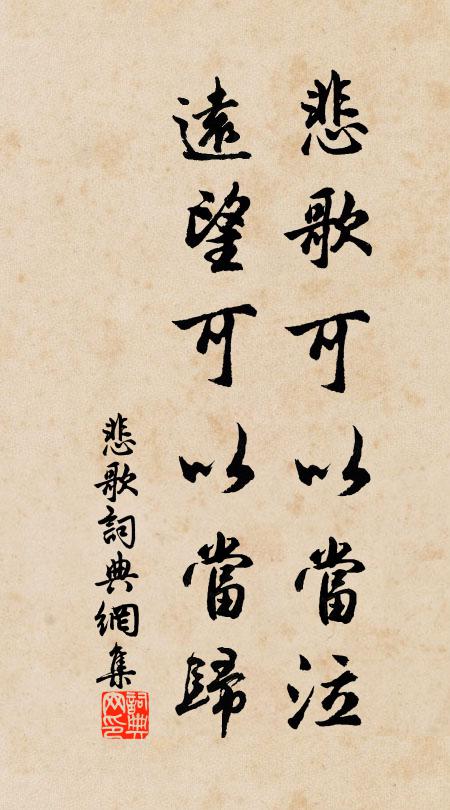 悲歌可以當泣
遠望可以當歸
悲歌詞典網集
詞典网印